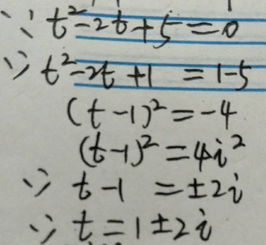 ∵ t²-2t+5=0
∵ t²-2t+1 =1-5
(t-1)²=-4
(t-1)²=4i²
∵ t-1 =±2i
∵ t=1±2i